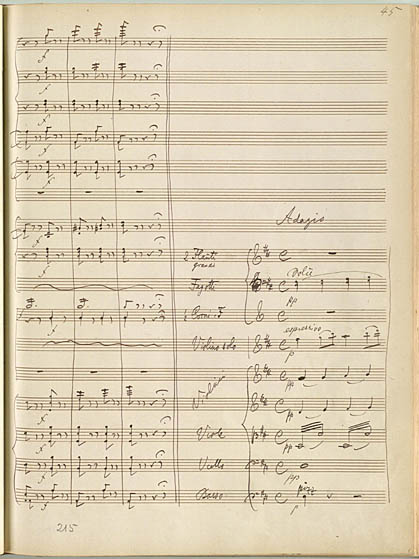 45
Adagio
2 Flauti
grandi
dolce
Fagotti
pp
2 Corni in F
espressivo
Violino solo
p
Violini
pp
Viole
pp
Vcello
pp
pizz
Basso
p
215